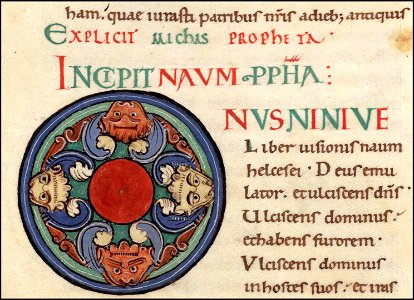 ham. quae iurasti patribus nr̄is a dieb; antiquis
EXPLICIT MICHAS PROPHETA.
INCIPIT NAUM PPHA:
NUS NINIVE
Liber uisionis naum
helcesei · Deus emu
lator. et ulciscens dn̄s
Ulciscens dominus
et habens furorem.
Vlciscens dominus
in hostes suos. et iras